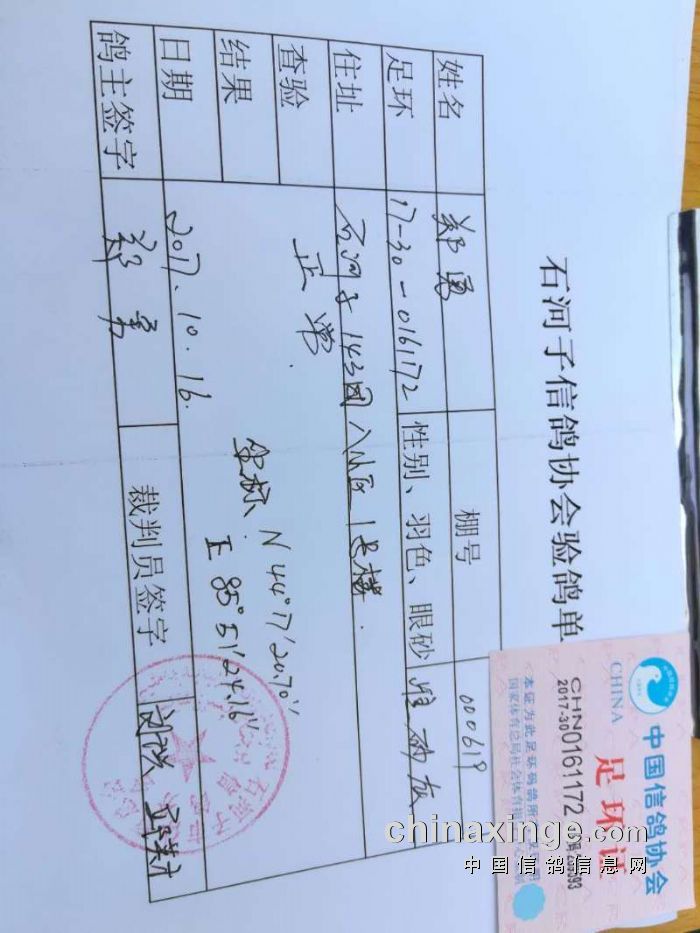 石河子信鸽协会验鸽单
姓名 郑勇 棚号 000619
足环 17-30-0161172 性别、羽色、眼砂 雄 砂 灰
住址 石河子143团八小区1号楼.
查验
结果
正常
坐标. N 44°17'20.70"
E 85°51'24.16"
日期 2017.10.16.
鸽主签字 郑勇 裁判员签字
中国信鸽协会
CHINA 足环证
CHN
2017-30 0161172
本证为此足环码鸽所
国家体育总局社会体育指
chinaxinge.com
中国信鸽信息网